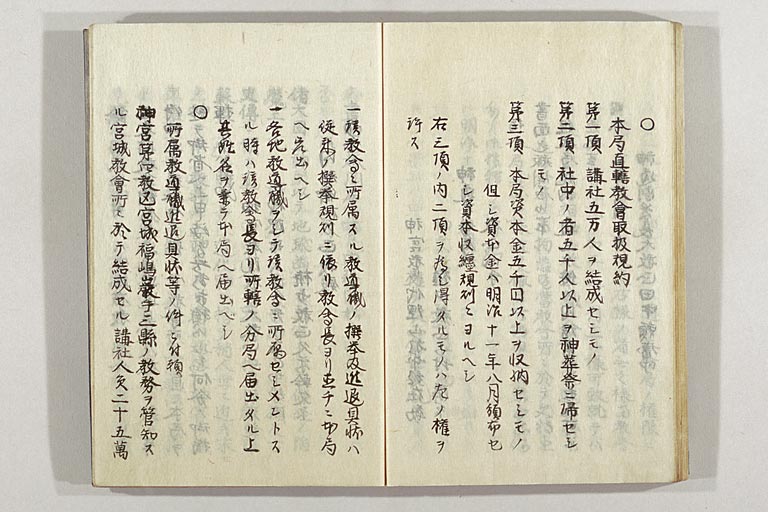 ○
本局直轄教會取扱規約
第一項 講社五万人ヲ結成セシモノ
第二項 社中ノ者五千人以上ヲ神葬祭ニ帰セシ
モノ
第三項 本局資本金五千円以上ヲ収納セシモノ
但シ資本金ハ明治十一年八月頒布セ
シ資本収纏規則ニヨルヘシ
右三項ノ内二項ヲ為シ得タルモノハ左ノ権ヲ
許ス
一該教會ニ所属スル教導職ノ撰挙及進退具状ハ
従来ノ撰挙規則ニ依リ教會長ヨリ直チニ本局
ヘ差出ヘシ
一各地教導職ヲシテ該教會ニ所属セシメントス
ル時ハ該教會長ヨリ所轄ノ分局ヘ届出タル上
其姓名ヲ以テ本局ヘ届出ヘシ
○
所属教導職進退具状等ノ件ニ付願
神宮第 教区宮城福嶋岩手三縣ノ教務ヲ管知ス
ル宮城教會所ニ於テ結成セル講社人員二十五萬